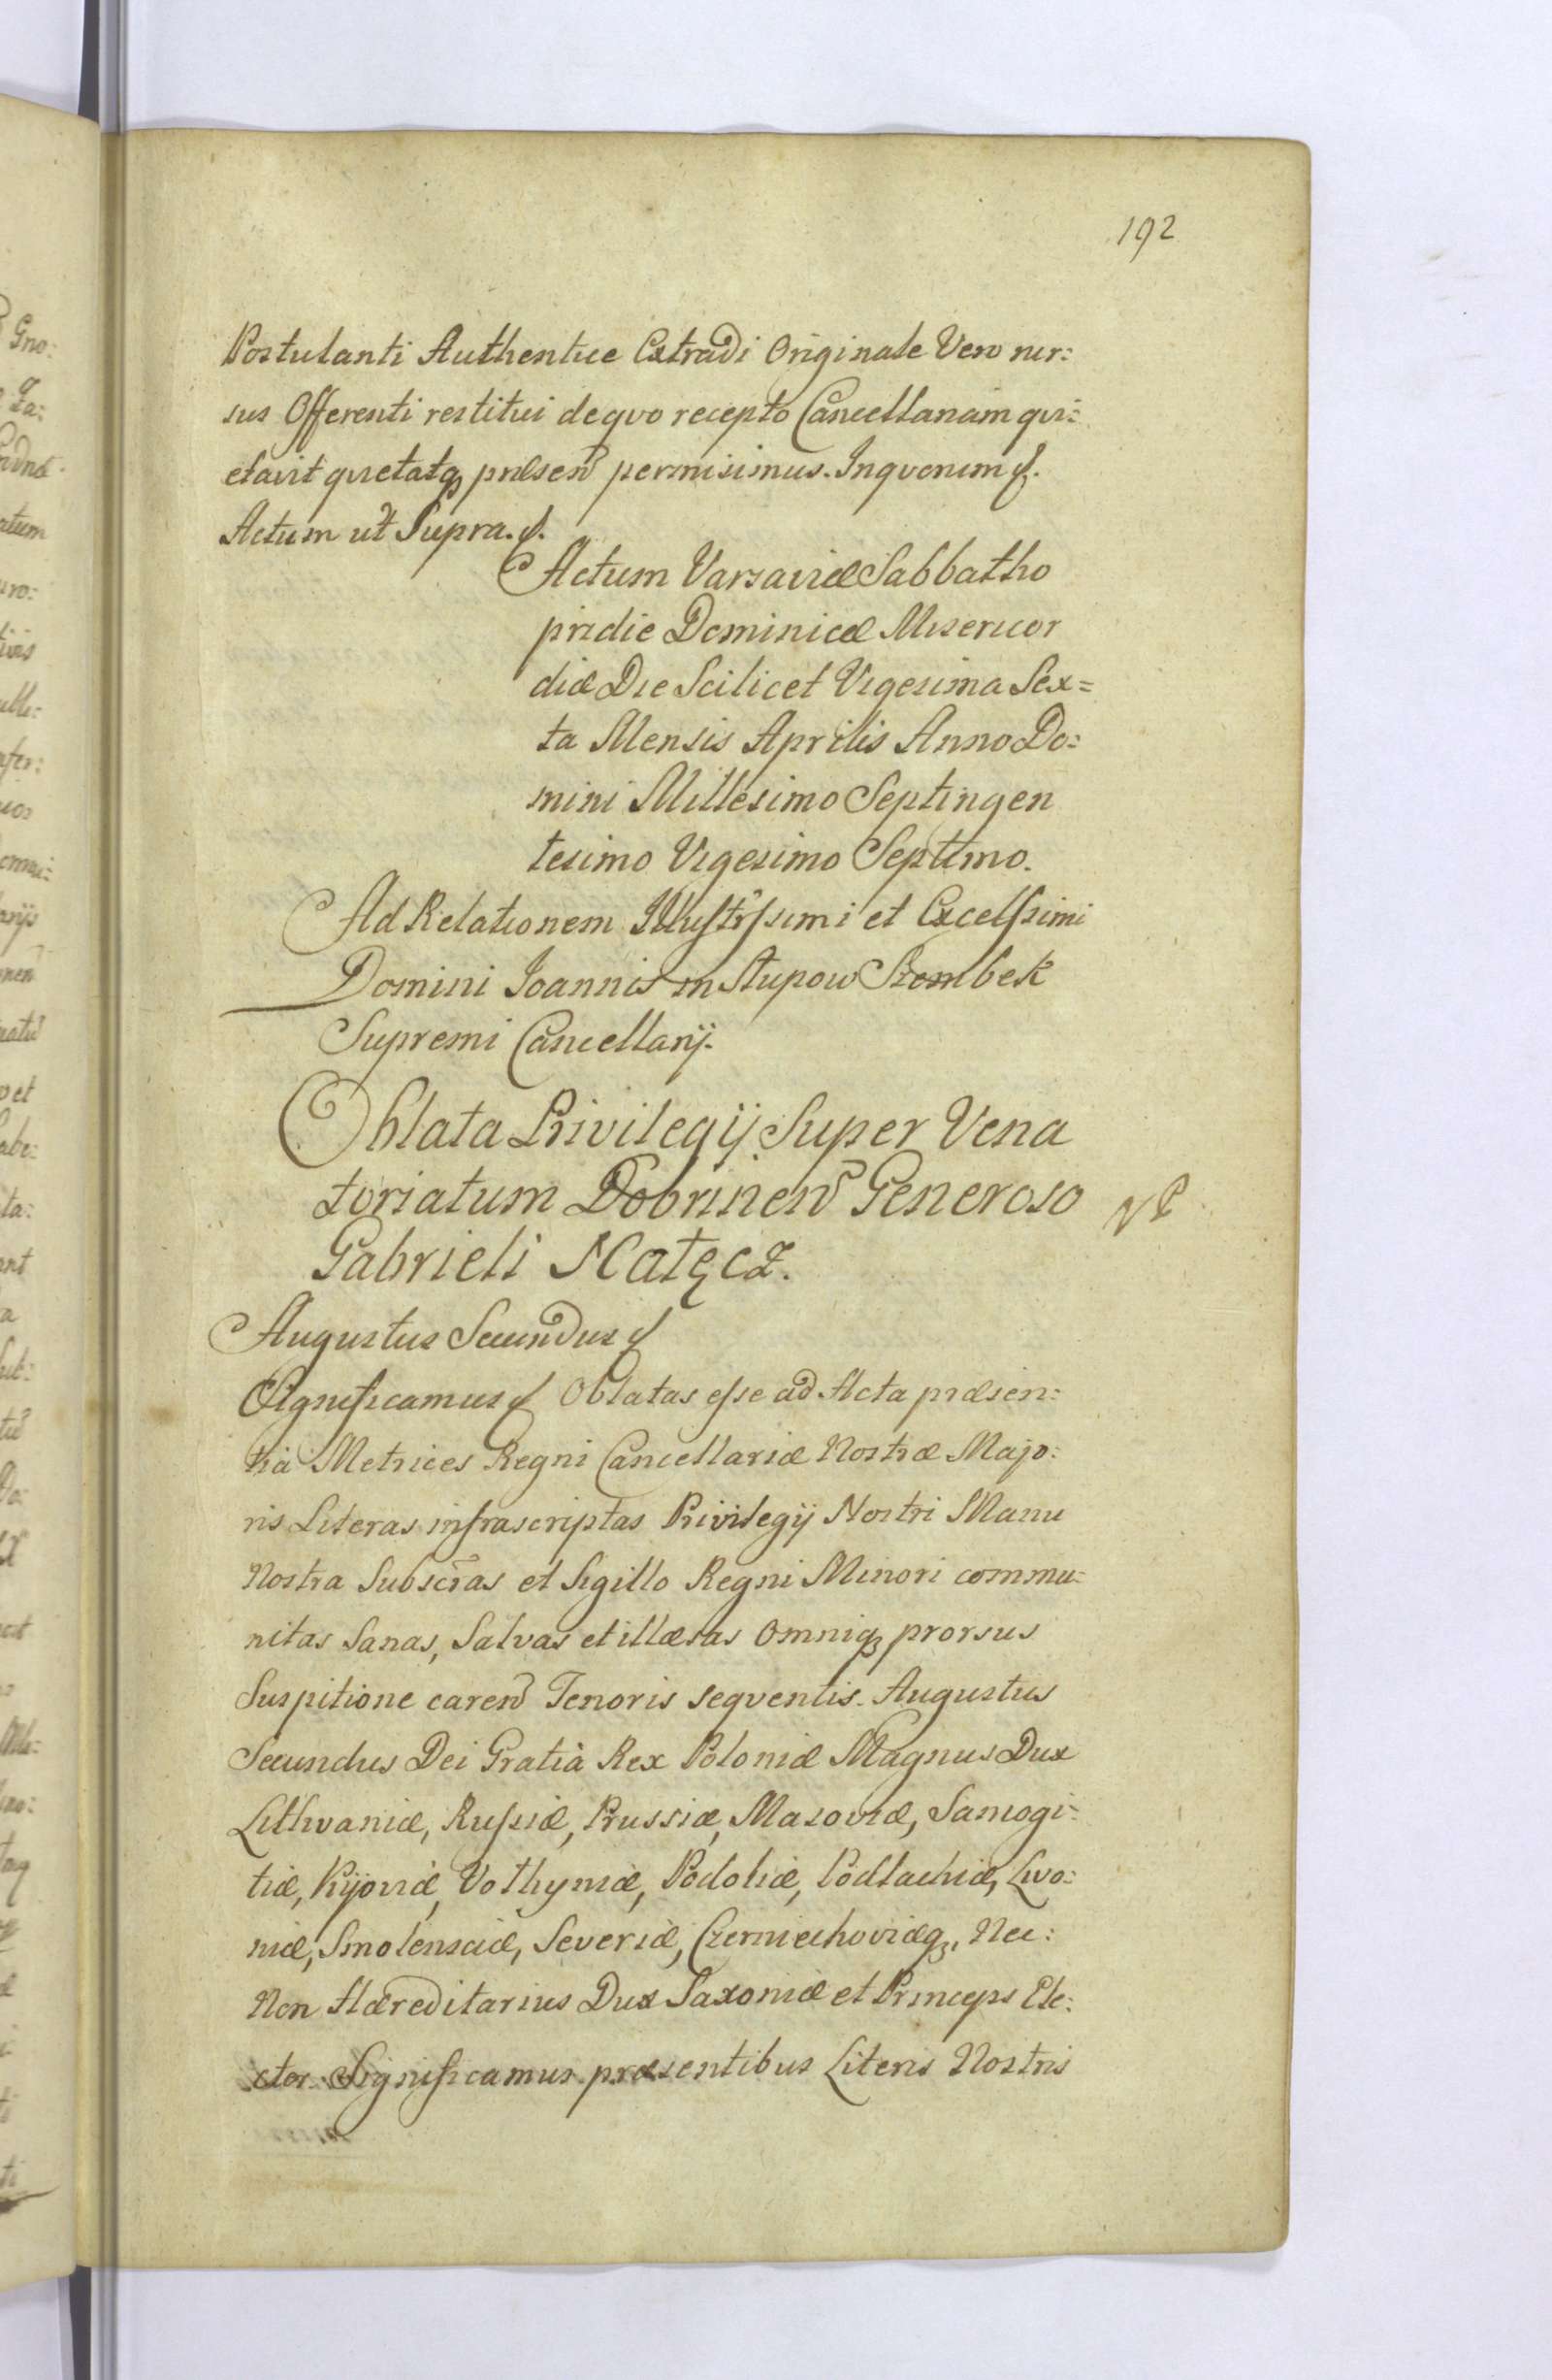 192
Postulanti Authentice Extradi Originale Vero rur:
sus Offerenti restitui de qvo recepto Cancellariam qvi:
etavit qvietatq3 præsen permisimus. In qvorum &.
Actum ut Supra. &.
Actum Varsaviæ Sabbatho
pridie Dominicæ Misericor
diæ Die Scilicet Vigesima Sex=
ta Mensis Aprilis Anno Do:
mini Millesimo Septingen
tesimo Vigesimo Septimo.
Ad Relationem Illustrissimi et Excelssimi
Domini Joannis in Słupow Szembek
Supremi Cancellarij.
Oblata Privilegij Super Vena
toriatum Dobrinen Generoso
Gabrieli Natęcz.
Augustus Secundus &
Significamus & Oblatas esse ad Acta præsen:
tia Metrices Regni Cancellariæ Nostræ Majo:
ris Literas infrascriptas Privilegij Nostri Manu
Nostra Subscras et Sigillo Regni Minori commu:
nitas Sanas, Salvas et illæsas Omniq3 prorsus
Suspitione caren Tenoris seqventis. Augustus
Secundus Dei Gratià Rex Poloniæ Magnus Dux
Lithvaniæ, Russiæ, Prussiæ, Masoviæ, Samogi:
tiæ, Kijoviæ, Volhyniæ, Podoliæ, Podlachiæ, Livo:
niæ, Smolensciæ, Severiæ, Czerniechoviæq3, Nec:
Non Hæreditarius Dux Saxoniæ et Princeps Ele:
ctor. Significamus præsentibus Literis Nostris